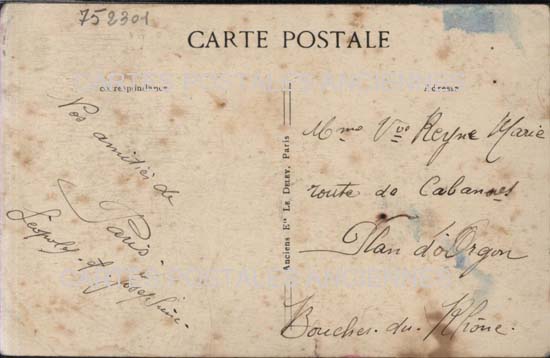 752301
CARTE POSTALE
CARTES POSTALES ANCIENNES
Correspondance
Adresse
Nos amitiés de
Paris.
Léopold.
Mme Vve Reyne Marie
route de Cabannes
Plan d'Orgon
Bouches-du-Rhône
Anciens Ets Le Deley, Paris
CARTES POSTALES ANCIENNES